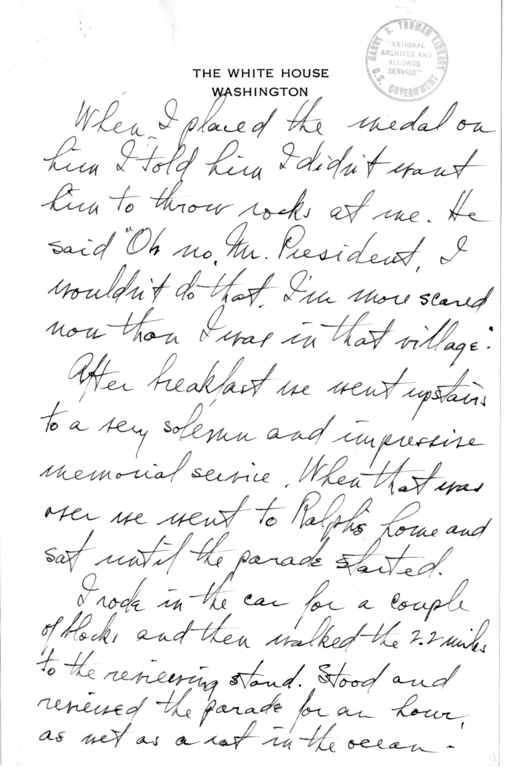 HARRY S. TRUMAN LIBRARY
"NATIONAL
ARCHIVES AND
RECORDS
SERVICE"
U.S. GOVERNMENT
THE WHITE HOUSE
WASHINGTON
When I placed the medal on
him I told him I didn't want
him to throw rocks at me. He
said "Oh no, Mr. President, I
wouldn't do that. I'm more scared
now than I was in that village."
After breakfast we went upstairs
to a very solemn and impressive
memorial service. When that was
over we went to Ralph's home and
sat until the parade started.
I rode in the car for a couple
of blocks and then walked the 2.2 miles
to the reviewing stand. Stood and
reviewed the parade for an hour,
as wet as a rat in the ocean.